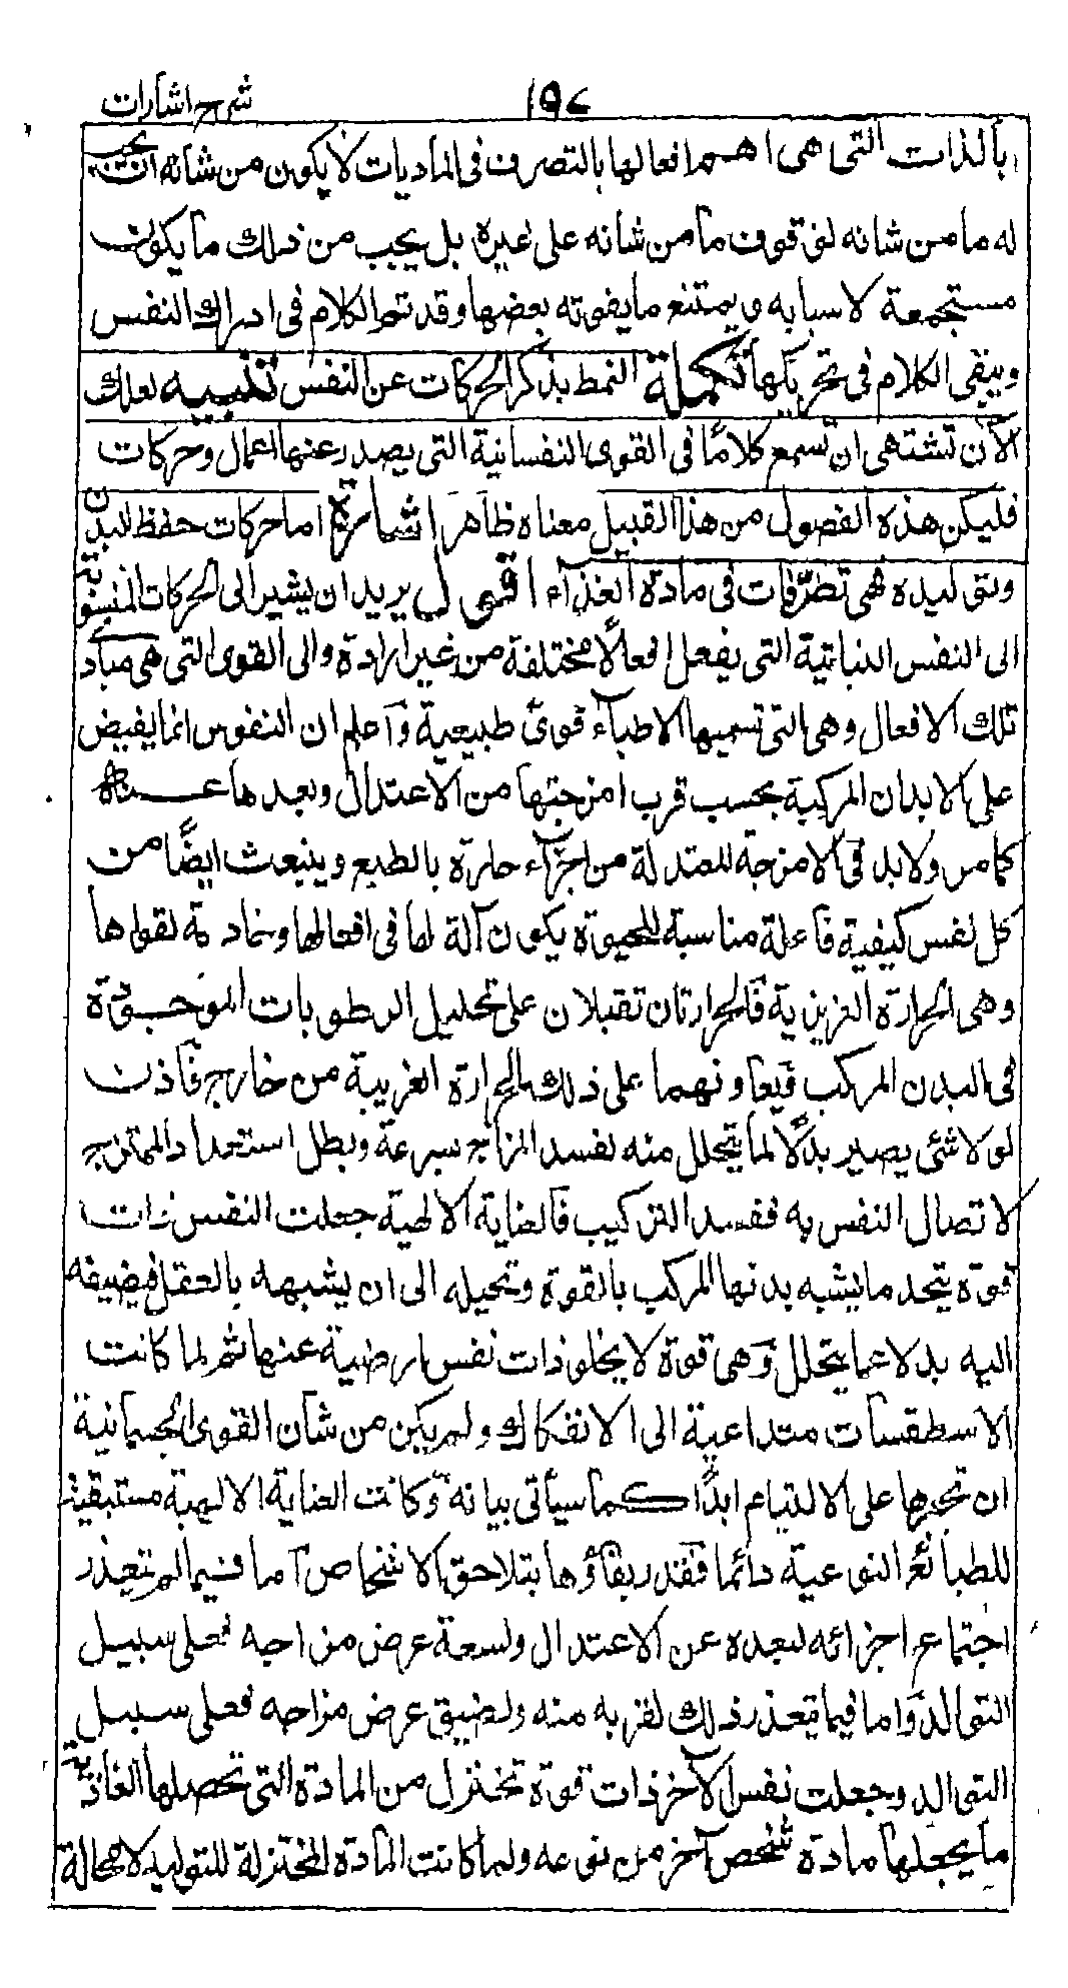 ١٩٧ شرح اشارات
بالذات التى هى اهم افعالها بالتصرف فى الماديات لا يكون من شانه ان يجب
له ما من شانه لو قوف ما من شانه على غيره بل يجب من ذلك ما يكون
مستجمعة لاسبابه ويمتنع ما يفوته بعضها وقد تم الكلام فى ادراك النفس
ويبقى الكلام فى تحريكها تكملة النمط بذكر الحركات عن النفس تنبيه لعلك
الآن تشتهى ان تسمع كلامًا فى القوى النفسانية التى يصدر عنها اعمال وحركات
فليكن هذه الفصول من هذا القبيل معناه ظاهر اشارة اما حركات حفظ البدن
وتوليده فهى تصرّفات فى مادة الغذاء اقول يريد ان يشير الى الحركات المنسوبة
الى النفس النباتية التى يفعل افعالًا مختلفة من غير ارادة والى القوى التى هى مبادى
تلك الافعال وهى التى تسميها الاطباء قوىً طبيعية واعلم ان النفوس انما يفيض
على الابدان المركبة بحسب قرب امزجتها من الاعتدال وبعدها عنه
كما مر ولابد فى الامزجة المعتدلة من اجزاء حارة بالطبع وينبعث ايضًا من
كل نفس كيفية فاعلة مناسبة للحيوة يكون آلة لها فى افعالها وخادمة لقواها
وهى الحرارة الغريزية فالحرارتان تقبلان على تحليل الرطوبات الموجودة
فى البدن المركب ويعاونهما على ذلك الحرارة الغريبة من خارج فاذن
لولا شئ يصير بدلًا لما يتحلل منه لفسد المزاج بسرعة وبطل استعداد الممتزج
لاتصال النفس به ففسد التركيب فالعناية الالهية جعلت النفس ذات
قوة يتحد ما يشبه بدنها المركب بالقوة وتحيله الى ان يشبهه بالفعل فيضيفه
اليه بدلا عما يتحلل وهى قوة لا يخلو ذات نفس ارضية عنها ثم لما كانت
الاسطقسات متداعية الى الانفكاك ولم يكن من شأن القوى الجسمانية
ان تجبرها على الالتيام ابدًا كما سيأتى بيانه وكانت العناية الالهية مستبقية
للطبائع النوعية دائما فقدر بقاؤها بتلاحق الاشخاص اما فيما لم يتعذر
اجتماع اجزائه لبعده عن الاعتدال ولسعة عرض مزاجه فعلى سبيل
التوالد واما فيما يتعذر ذلك لقربه منه ولضيق عرض مزاجه فعلى سبيل
التوالد وجعلت نفس الآخر ذات قوة تختزل من المادة التى تحصلها الغاذية
ما يجعلها مادة شخص آخر من نوعه ولما كانت المادة المختزلة للتوليد لا محالة